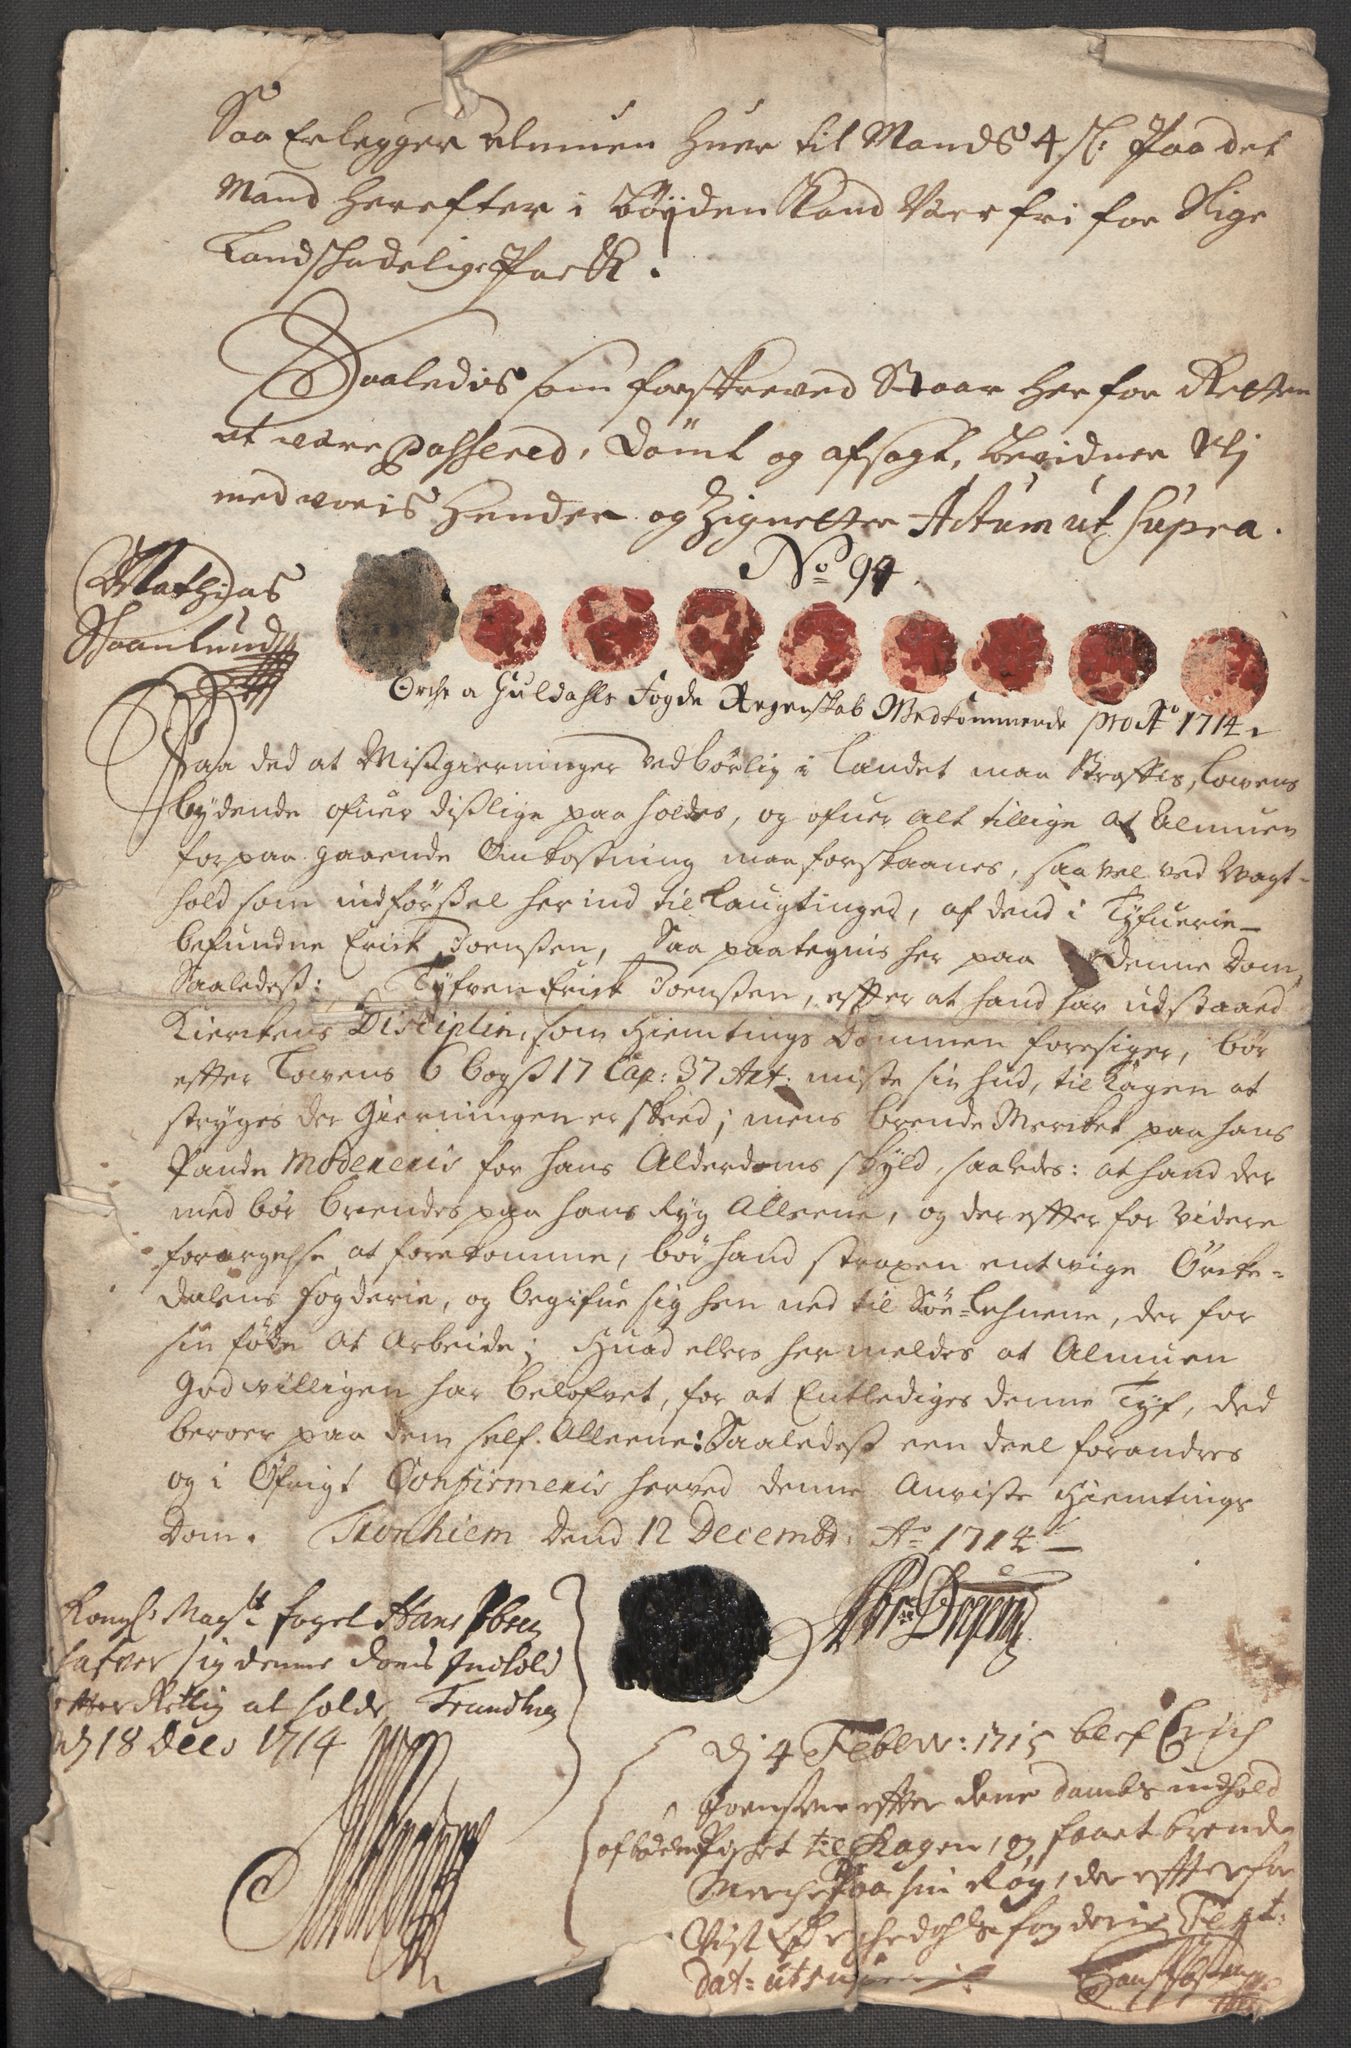 Saa Erlegger Almuen Huer til Mands 4 sl: Paa det
Mand Herefter i Bøyden Kand Være fri for Slige
Landskadelige Pack.
Saaledis som forskreved Staar Her for Retten
at være Passered, Dømt og afsagt, bevidner Vij
med voris Hender og Zignetter Actum ut Supra.
No 94.
Mathias
Skaanlund
Orche a Guldahls Fogde Regenskab Medkommende pro Ao 1714
Paa ded at Misgierninger vedbørlig i Landet maa Straffes, Lovens
bydende ofuer dislige paa holdes, og ofuer alt tillige at Almuen
for paa gaaende Omkostning maa forskaanes, saa vel ved Vagt-
hold som indførsel her ind til Laugtinged, af dend i Tyfuerie
befundne Erick Joensen, Saa paategnis her paa denne Dom,
Saaledes: Tyfven Erick Joensen, efter at hand har udstaaed
Kierckens Disciplin, som Hiemtings Dommen foresiger, bør
efter Lowens 6 bogs 17 Cap: 37 Art. miste sin hud, til Kagen at
stryges der Gierningen er skeed; mens brende Mercket paa hans
Pande Modereris for hans Alderdoms skyld, saaledes: at hand der
med bør brendes paa hans Ryg Alleene, og der efter for videre
forargelse at forekomme, bør hand straxen entvige Örcke-
dalens fogderie, og begifue sig hen ned til Söe-Lehnene, der for
sin føde at Arbeide; Huad ellers her meldes at Almuen
Godvilligen har belofvet, for at Entlediges denne Tyf, ded
beroer paa dem self Alleene: Saaledes een deel forandres
og i Øfrigt Confirmeris herved denne Anviste Hiemtings
Dom. Tronhiem Dend 12 Decembr: Ao 1714
Abr: Dreyer
Kongl: Mayts foget Hans
hafver sig denne doms Indhold
efter Rettlig at holde, Trundhm
dj 18 Decb 1714
Dj 4 Febrw: 1715 blef Erich
Joensen efter denne dombs indhold
af bødelen Pisket til Kagen, og faaet brende
Merche Paa sin Røg, der effter for
Vist Orchedahls fogderie Test:
Dat: ut supra